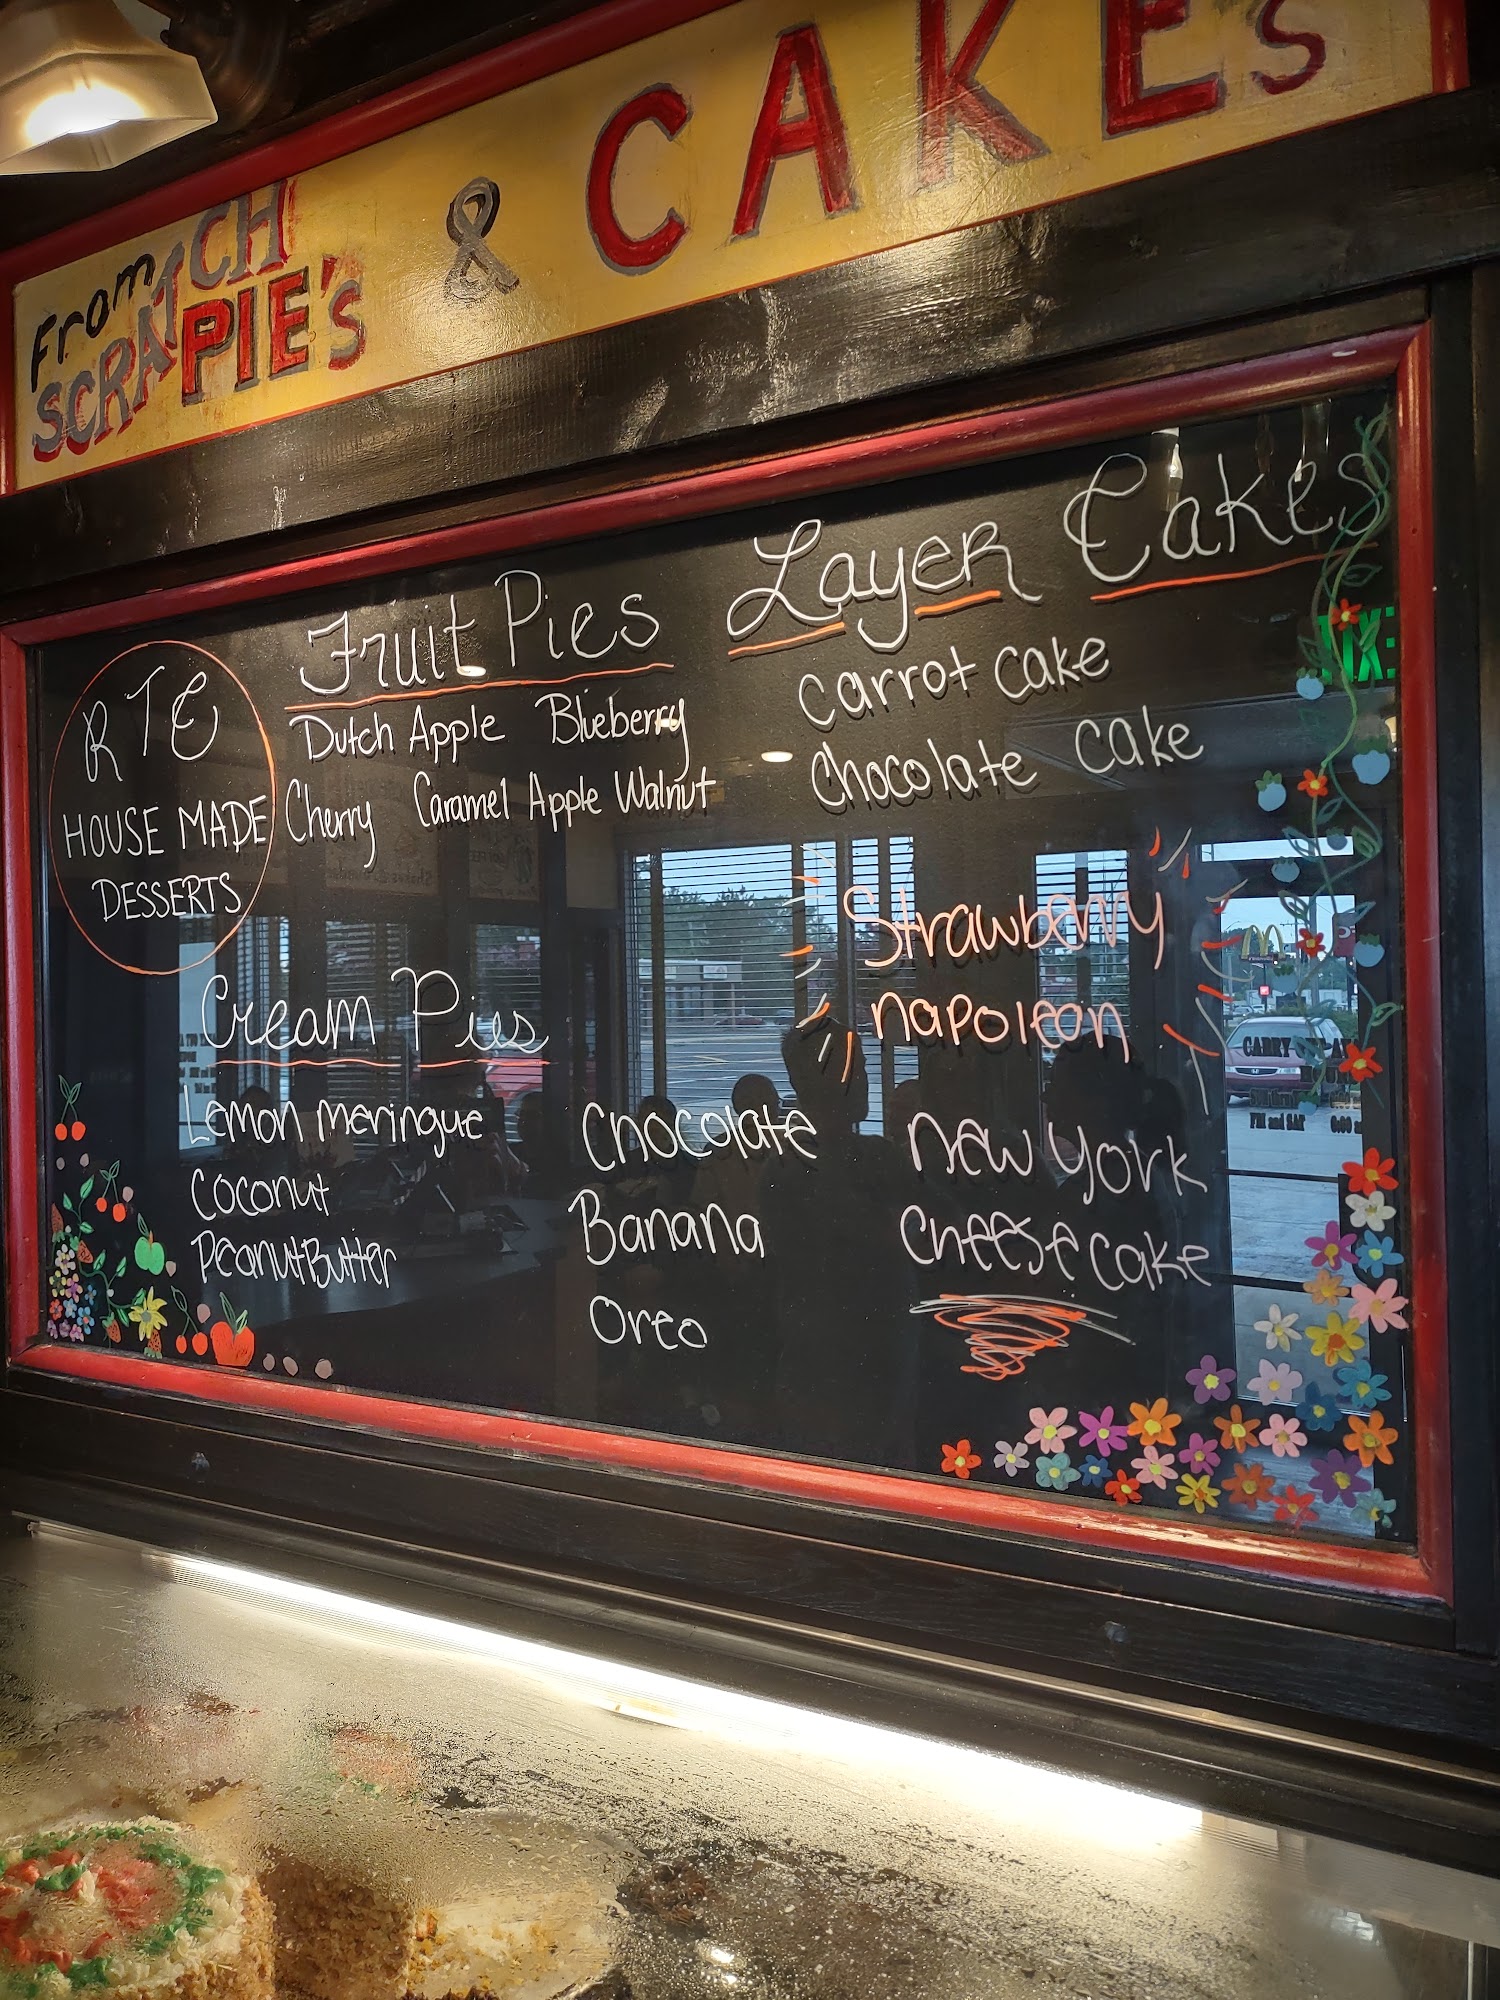 From
SCRATCH
PIE's & CAKEs
RTE
HOUSE MADE
DESSERTS
Fruit Pies
Dutch Apple Blueberry
Cherry Caramel Apple Walnut
Layer Cakes
Carrot Cake
Chocolate Cake
Strawberry
napoleon
Cream Pies
Lemon meringue
Coconut
PeanutButter
Chocolate
Banana
Oreo
New York
Cheesecake
EXIT